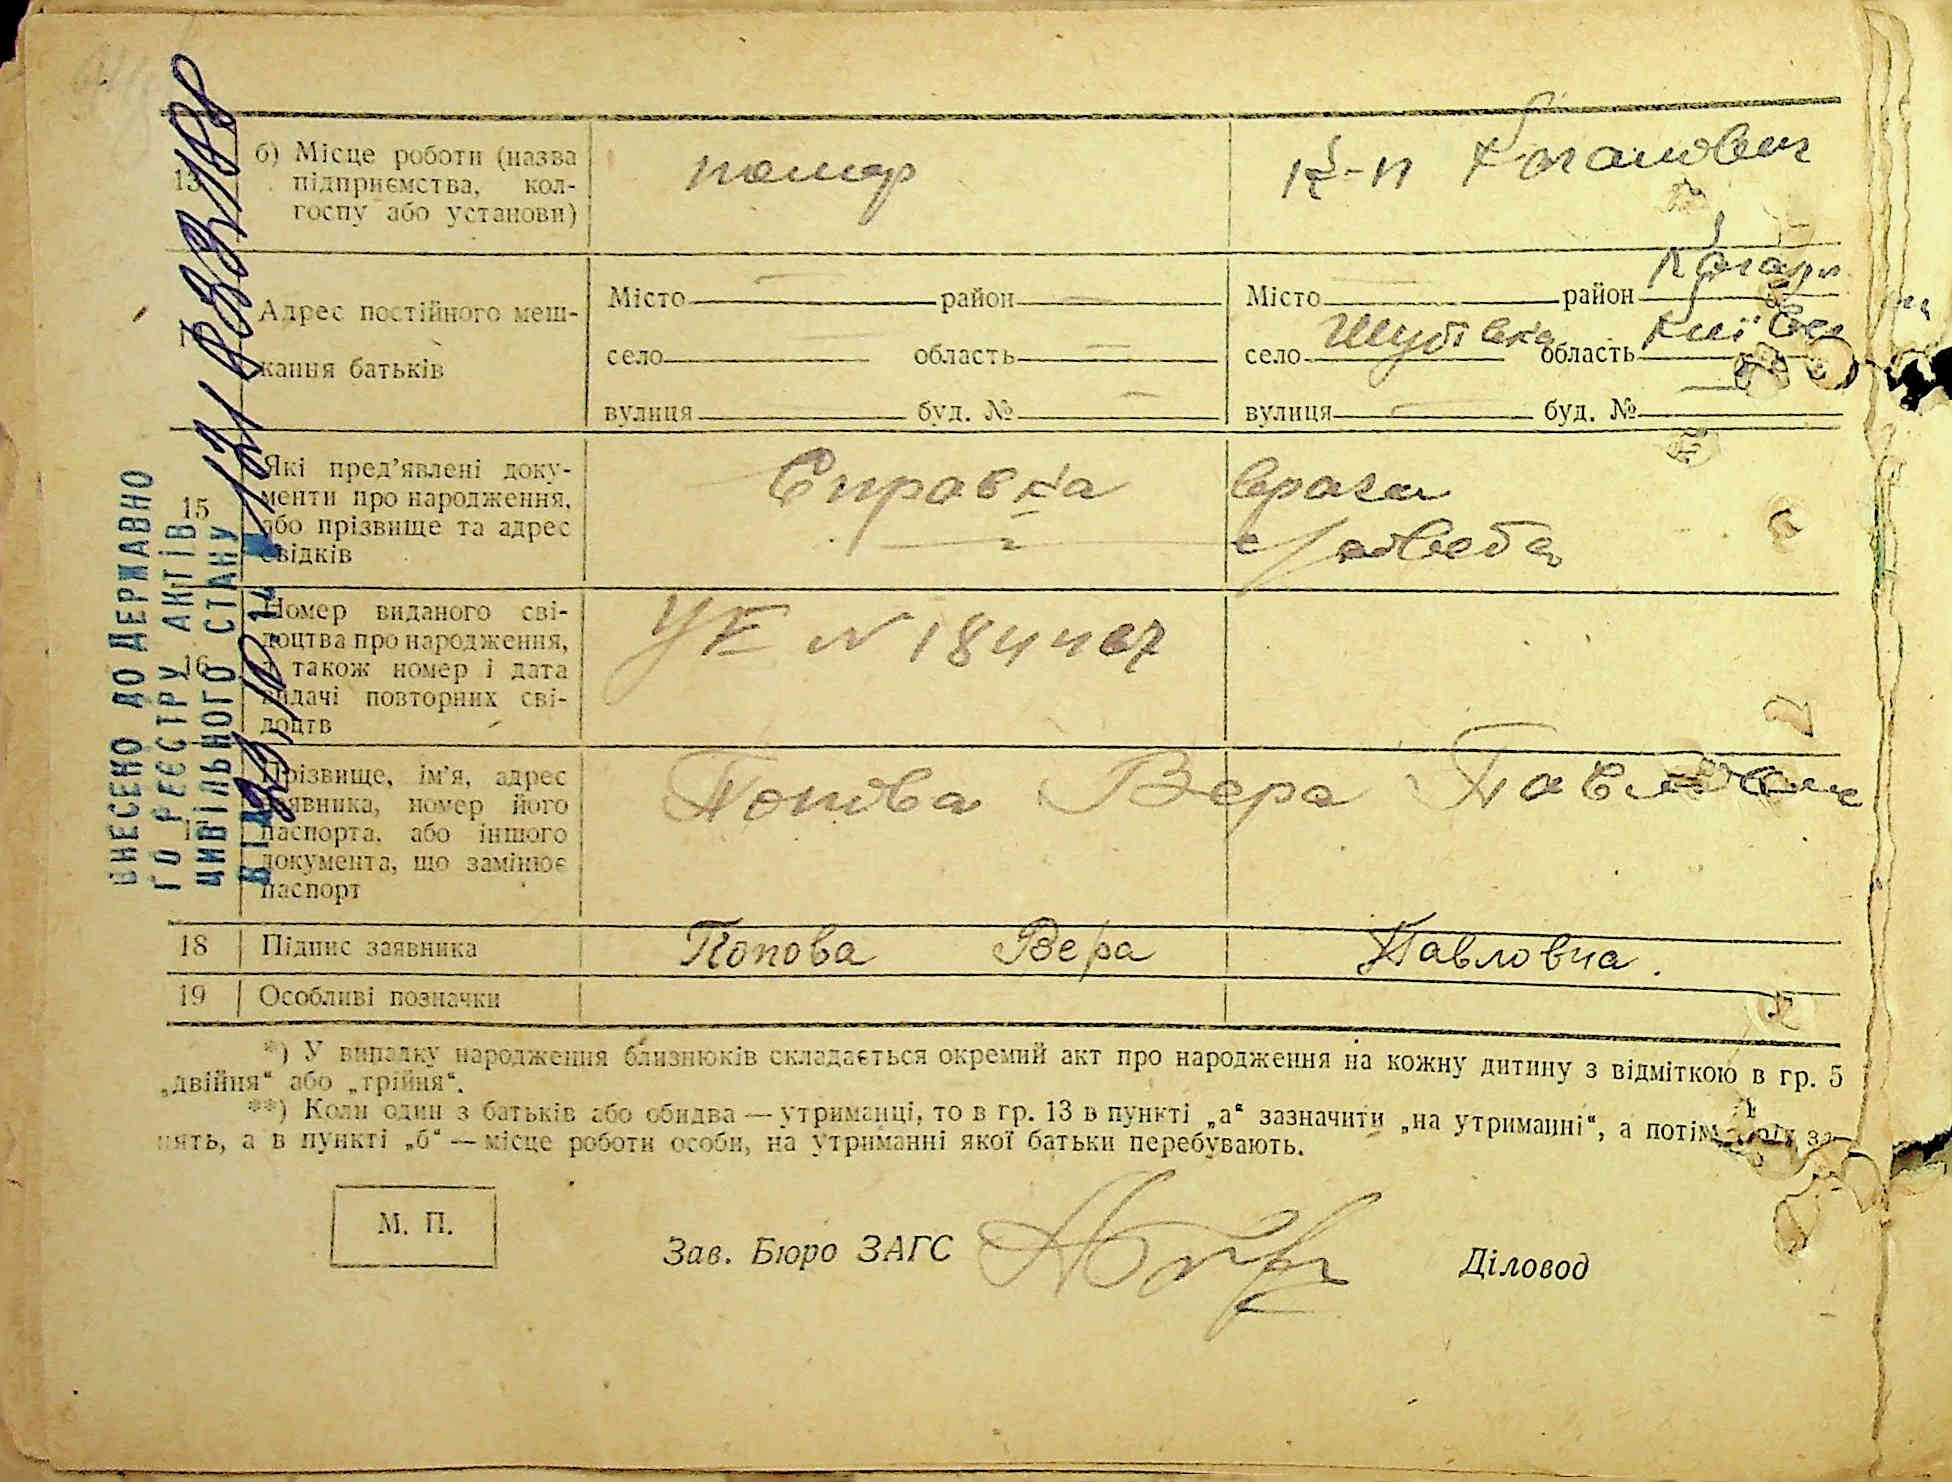 13
б) Місце роботи (назва
підприємства, кол-
госпу або установи)
помер
к-п Кагановича
Адрес постійного меш-
кання батьків
Місто район
село область
вулиця буд. №
Місто район Кагарл
село область Київськ
вулиця буд. №
15
Які пред’явлені доку-
менти про народження,
або прізвище та адрес
свідків
Справка врача
16
Номер виданого сві-
доцтва про народження,
а також номер і дата
видачі повторних сві-
доцтв
N 184467
Прізвище, ім’я, адрес
заявника, номер його
паспорта, або іншого
документа, що замінює
паспорт
Попова Вера Павловна
18 Підпис заявника
Попова Вера Павловна.
19 Особливі позначки
*) У випадку народження близнюків складається окремий акт про народження на кожну дитину з відміткою в гр. 5
„двійня“ або „трійня“.
**) Коли один з батьків або обидва — утриманці, то в гр. 13 в пункті „а“ зазначити „на утриманні“, а потім за-
нять, а в пункті „б“ — місце роботи особи, на утриманні якої батьки перебувають.
М. П.
Зав. Бюро ЗАГС
Діловод
ВНЕСЕНО ДО ДЕРЖАВНО
ГО РЕЄСТРУ АКТІВ
ЦИВІЛЬНОГО СТАНУ